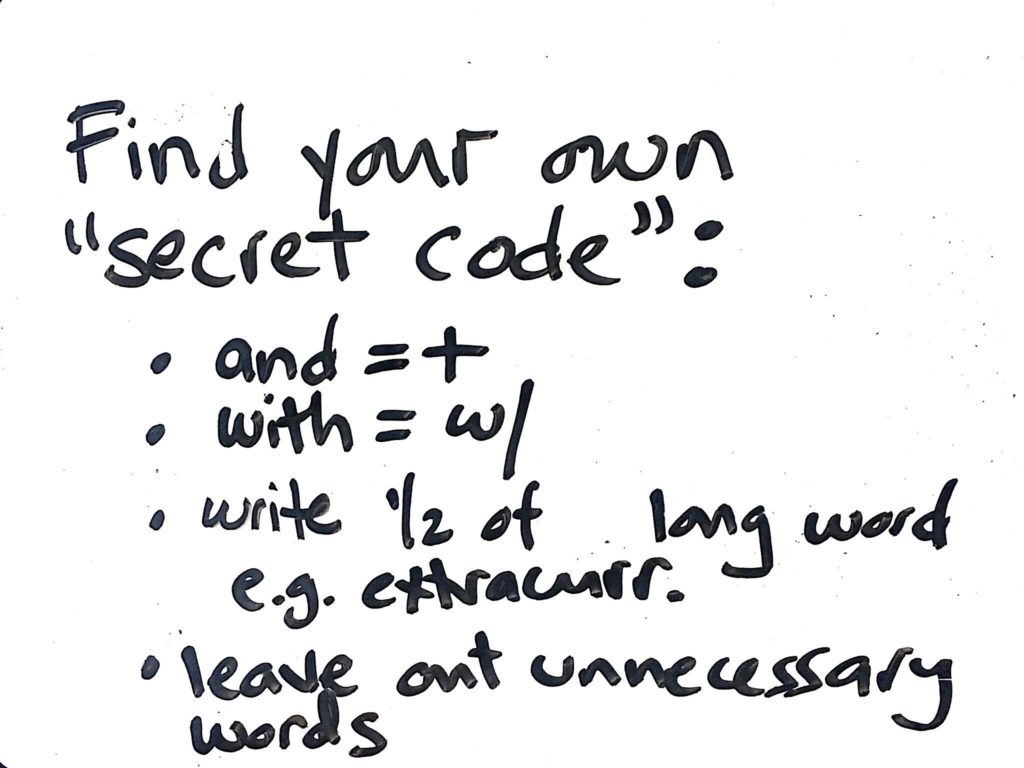 Find your own
"secret code":
• and = +
• with = w/
• write 1/2 of long word
e.g. extracurr.
• leave out unnecessary
words